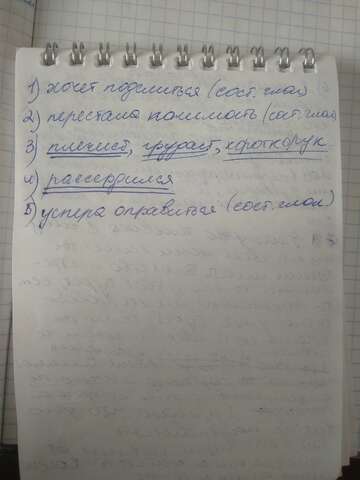 1) хочет поделиться (сост. глаг)
2) перестала понимать (сост. глаг)
3) плечист, грудаст, короткорук
4) рассердился
5) успела оправиться (сост. глаг)